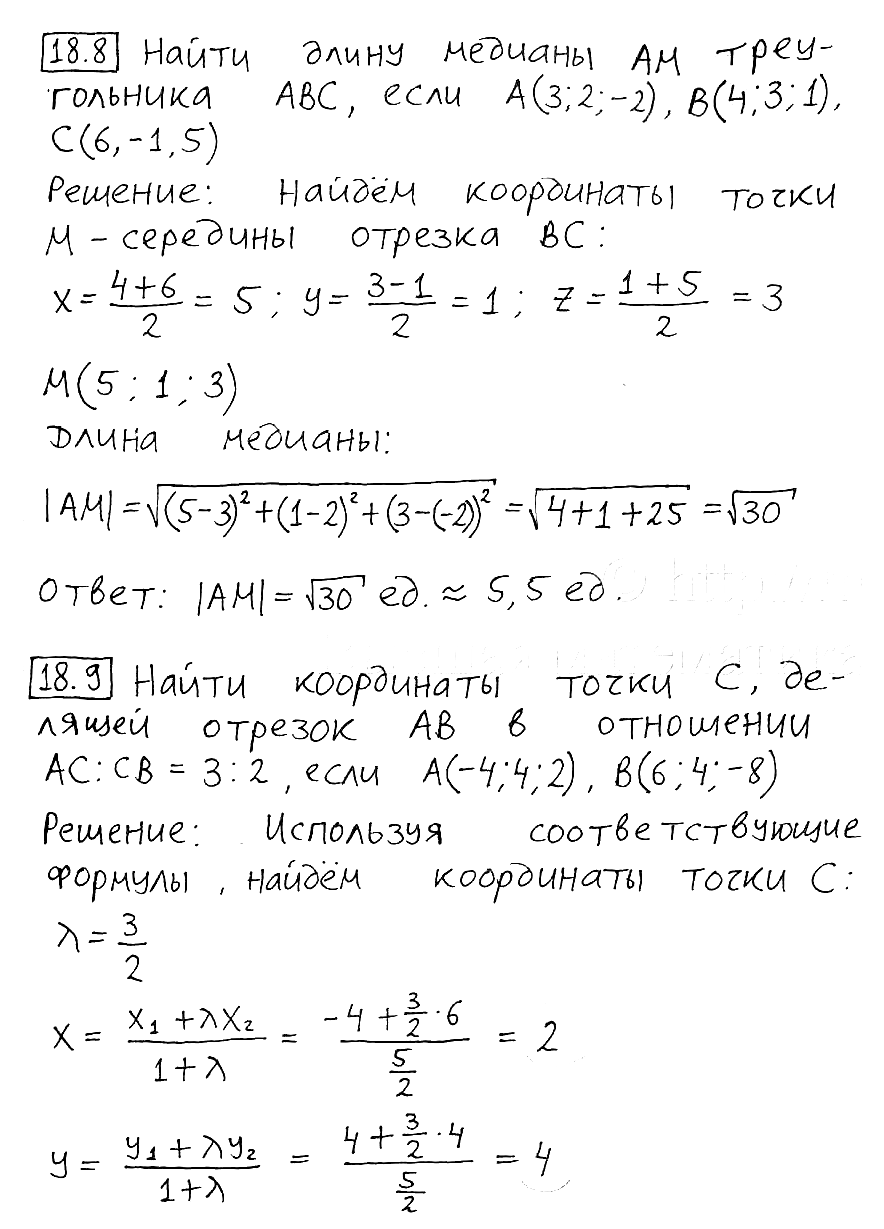 18.8 Найти длину медианы АМ треу-
гольника АВС, если А(3;2;-2), В(4;3;1),
С(6,-1,5)
Решение: Найдём координаты точки
М - середины отрезка ВС:
x = (4+6)/2 = 5; y = (3-1)/2 = 1; z = (1+5)/2 = 3
М(5;1;3)
Длина медианы:
|АМ| = √((5-3)²+(1-2)²+(3-(-2))²) = √(4+1+25) = √30
Ответ: |АМ| = √30 ед. ≈ 5,5 ед.
18.9 Найти координаты точки С, де-
лящей отрезок АВ в отношении
АС:СВ = 3:2, если А(-4;4;2), В(6;4;-8)
Решение: Используя соответствующие
формулы, найдём координаты точки С:
λ = 3/2
x = (x₁ + λx₂)/(1+λ) = (-4 + 3/2·6)/(5/2) = 2
y = (y₁ + λy₂)/(1+λ) = (4 + 3/2·4)/(5/2) = 4